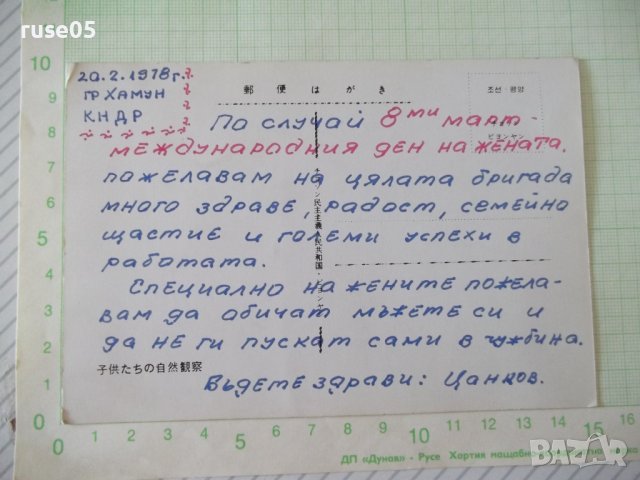 ruse05
20.2.1978 г.
гр ХАМУН
К Н Д Р
郵便はがき
조선 평양
ピョンヤン
По случай 8ми март -
международния ден на жената.
пожелавам на цялата бригада
много здраве, радост, семейно
щастие и големи успехи в
работата.
Специално на жените пожела-
вам да обичат мъжете си и
да не ги пускат сами в чужбина.
Бъдете здрави: Цанков.
チョソン民主主義人民共和国・ピョンヤン
子供たちの自然観察
10
5
0
0 1 2 3 4 5 6 7 8 9 10 11 12 13 14 15 16
ДП «Дуная» - Русе Хартия мащабно
bazar